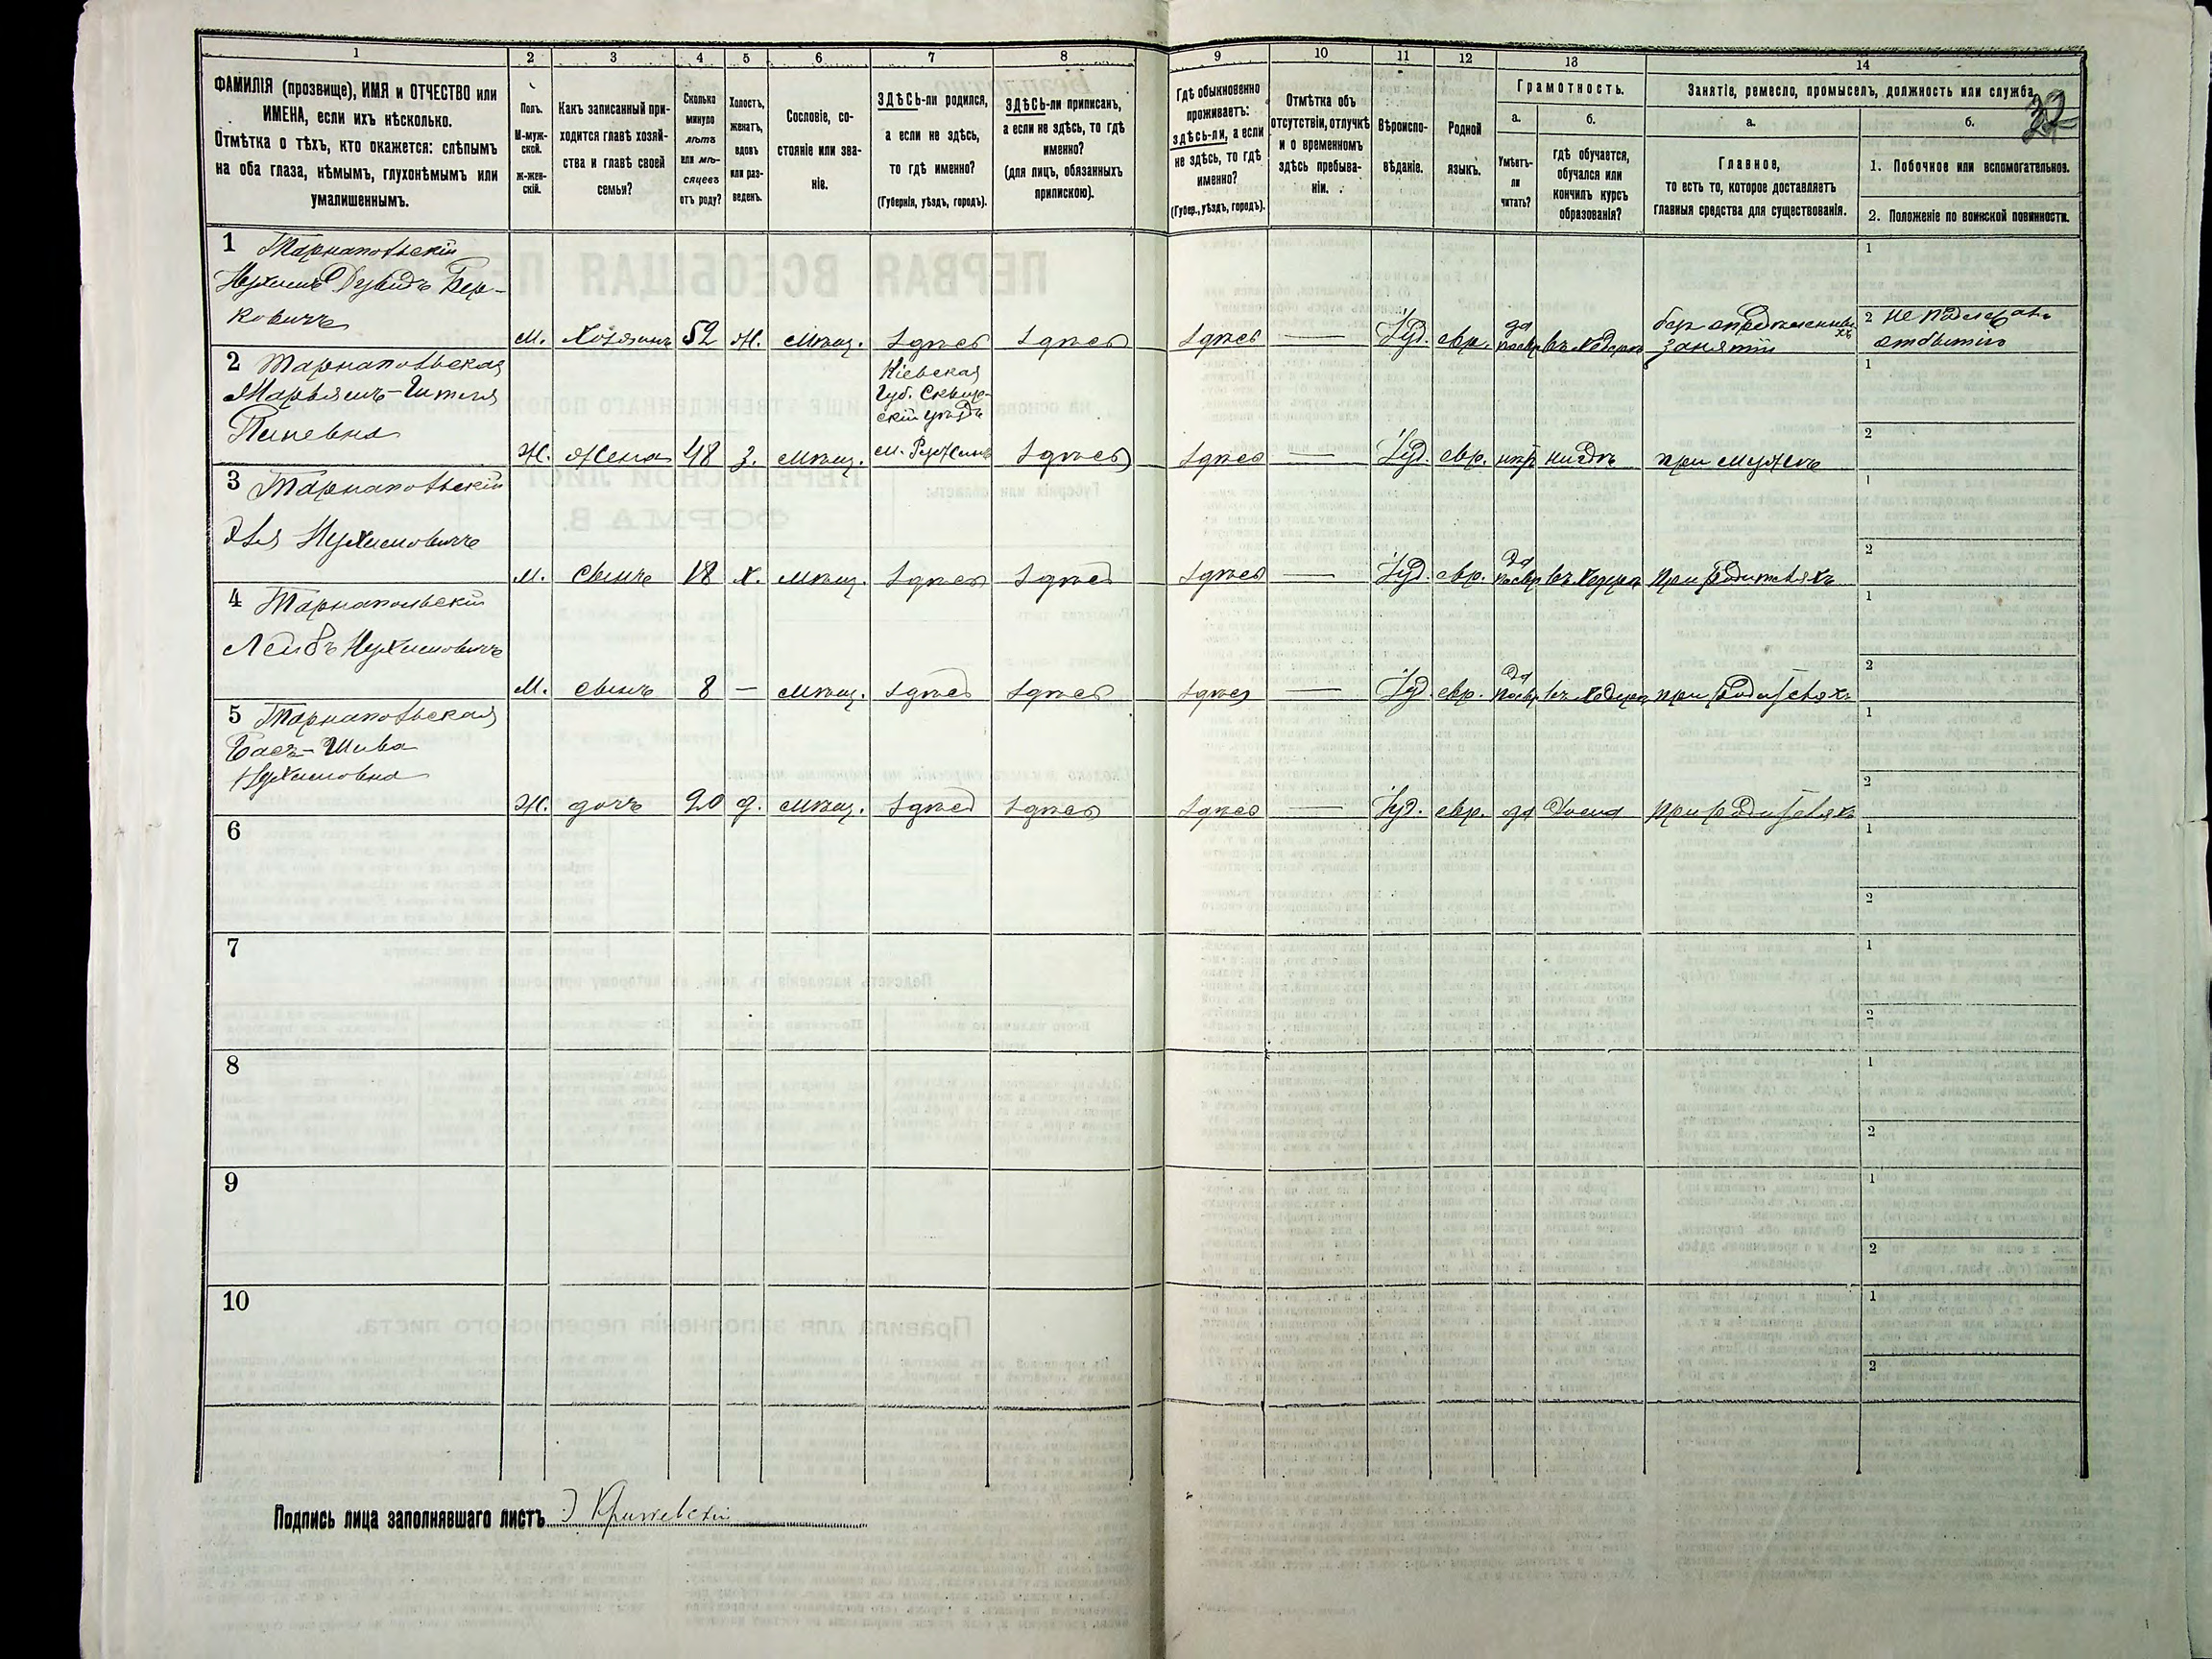 1
2
3
4
5
6
7
8
ФАМИЛІЯ (прозвище), ИМЯ и ОТЧЕСТВО или
ИМЕНА, если ихъ нѣсколько.
Отмѣтка о тѣхъ, кто окажется: слѣпымъ
на оба глаза, нѣмымъ, глухонѣмымъ или
умалишеннымъ.
Полъ.
М-муж-
ской.
Ж-жен-
скій.
Какъ записанный при-
ходится главѣ хозяй-
ства и главѣ своей
семьи?
Сколько
минуло
лѣтъ
или мѣ-
сяцевъ
отъ роду?
Холостъ,
женатъ,
вдовъ
или раз-
веденъ.
Сословіе, со-
стояніе или зва-
ніе.
ЗДѢСЬ-ли родился,
а если не здѣсь,
то гдѣ именно?
(Губернія, уѣздъ, городъ).
ЗДѢСЬ-ли приписанъ,
а если не здѣсь, то гдѣ
именно?
(для лицъ, обязанныхъ
припискою).
9
10
11
12
13
14
Гдѣ обыкновенно
проживаетъ:
здѣсь-ли, а если
не здѣсь, то гдѣ
именно?
(Губер., уѣздъ, городъ).
Отмѣтка объ
отсутствіи, отлучкѣ
и о временномъ
здѣсь пребыва-
ніи.
Вѣроиспо-
вѣданіе.
Родной
языкъ.
Грамотность.
а.
Умѣетъ-
ли
читать?
б.
гдѣ обучается,
обучался или
кончилъ курсъ
образованія?
Занятіе, ремесло, промыселъ, должность или служба
32
а.
Главное,
то есть то, которое доставляетъ
главныя средства для существованія.
б.
1. Побочное или вспомогательное.
2. Положеніе по воинской повинности.
1 Тарнапольскій
Нухимъ Дувидъ Бер-
ковичъ
М. Хозяинъ 52 Ж. мѣщ. здѣсь здѣсь здѣсь — Іуд. евр. да въ хедерѣ
без опредѣленныхъ
занятій
1
2 не подлежа
отбытію
2 Тарнапольская
Марьямъ-Гитля
Пиневна
Ж. Жена 48 З. мѣщ.
Кіевская
Губ. Сквир-
скій уѣздъ
м. Ружинъ
здѣсь здѣсь — Іуд. евр. нѣт нигдѣ при мужѣ
1
2
3 Тарнапольскій
Нухимовичъ
М. сынъ 18 Х. мѣщ. здѣсь здѣсь здѣсь — Іуд. евр. да въ хедерѣ при родителяхъ
1
2
4 Тарнапольскій
Лейбъ Нухимовичъ
М. сынъ 8 — мѣщ. здѣсь здѣсь здѣсь — Іуд. евр. да въ хедерѣ при родителяхъ
1
2
5 Тарнапольская
Бася-Шива
Нухимовна
Ж. дочь 20 д. мѣщ. здѣсь здѣсь здѣсь — Іуд. евр. да дома при родителяхъ
1
2
6
1
2
7
1
2
8
1
2
9
1
2
10
1
2
Подпись лица заполнявшаго листъ